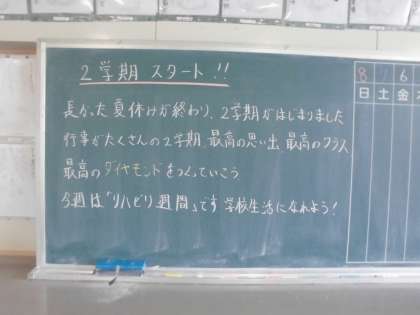 2学期 スタート!!
長かった夏休みが終わり、2学期がはじまりました
行事がたくさんの2学期、最高の思い出、最高のクラス
最高のダイヤモンドをつくっていこう
今週は「リハビリ週間」です 学校生活になれよう!
8 / 6
日 土 金 木